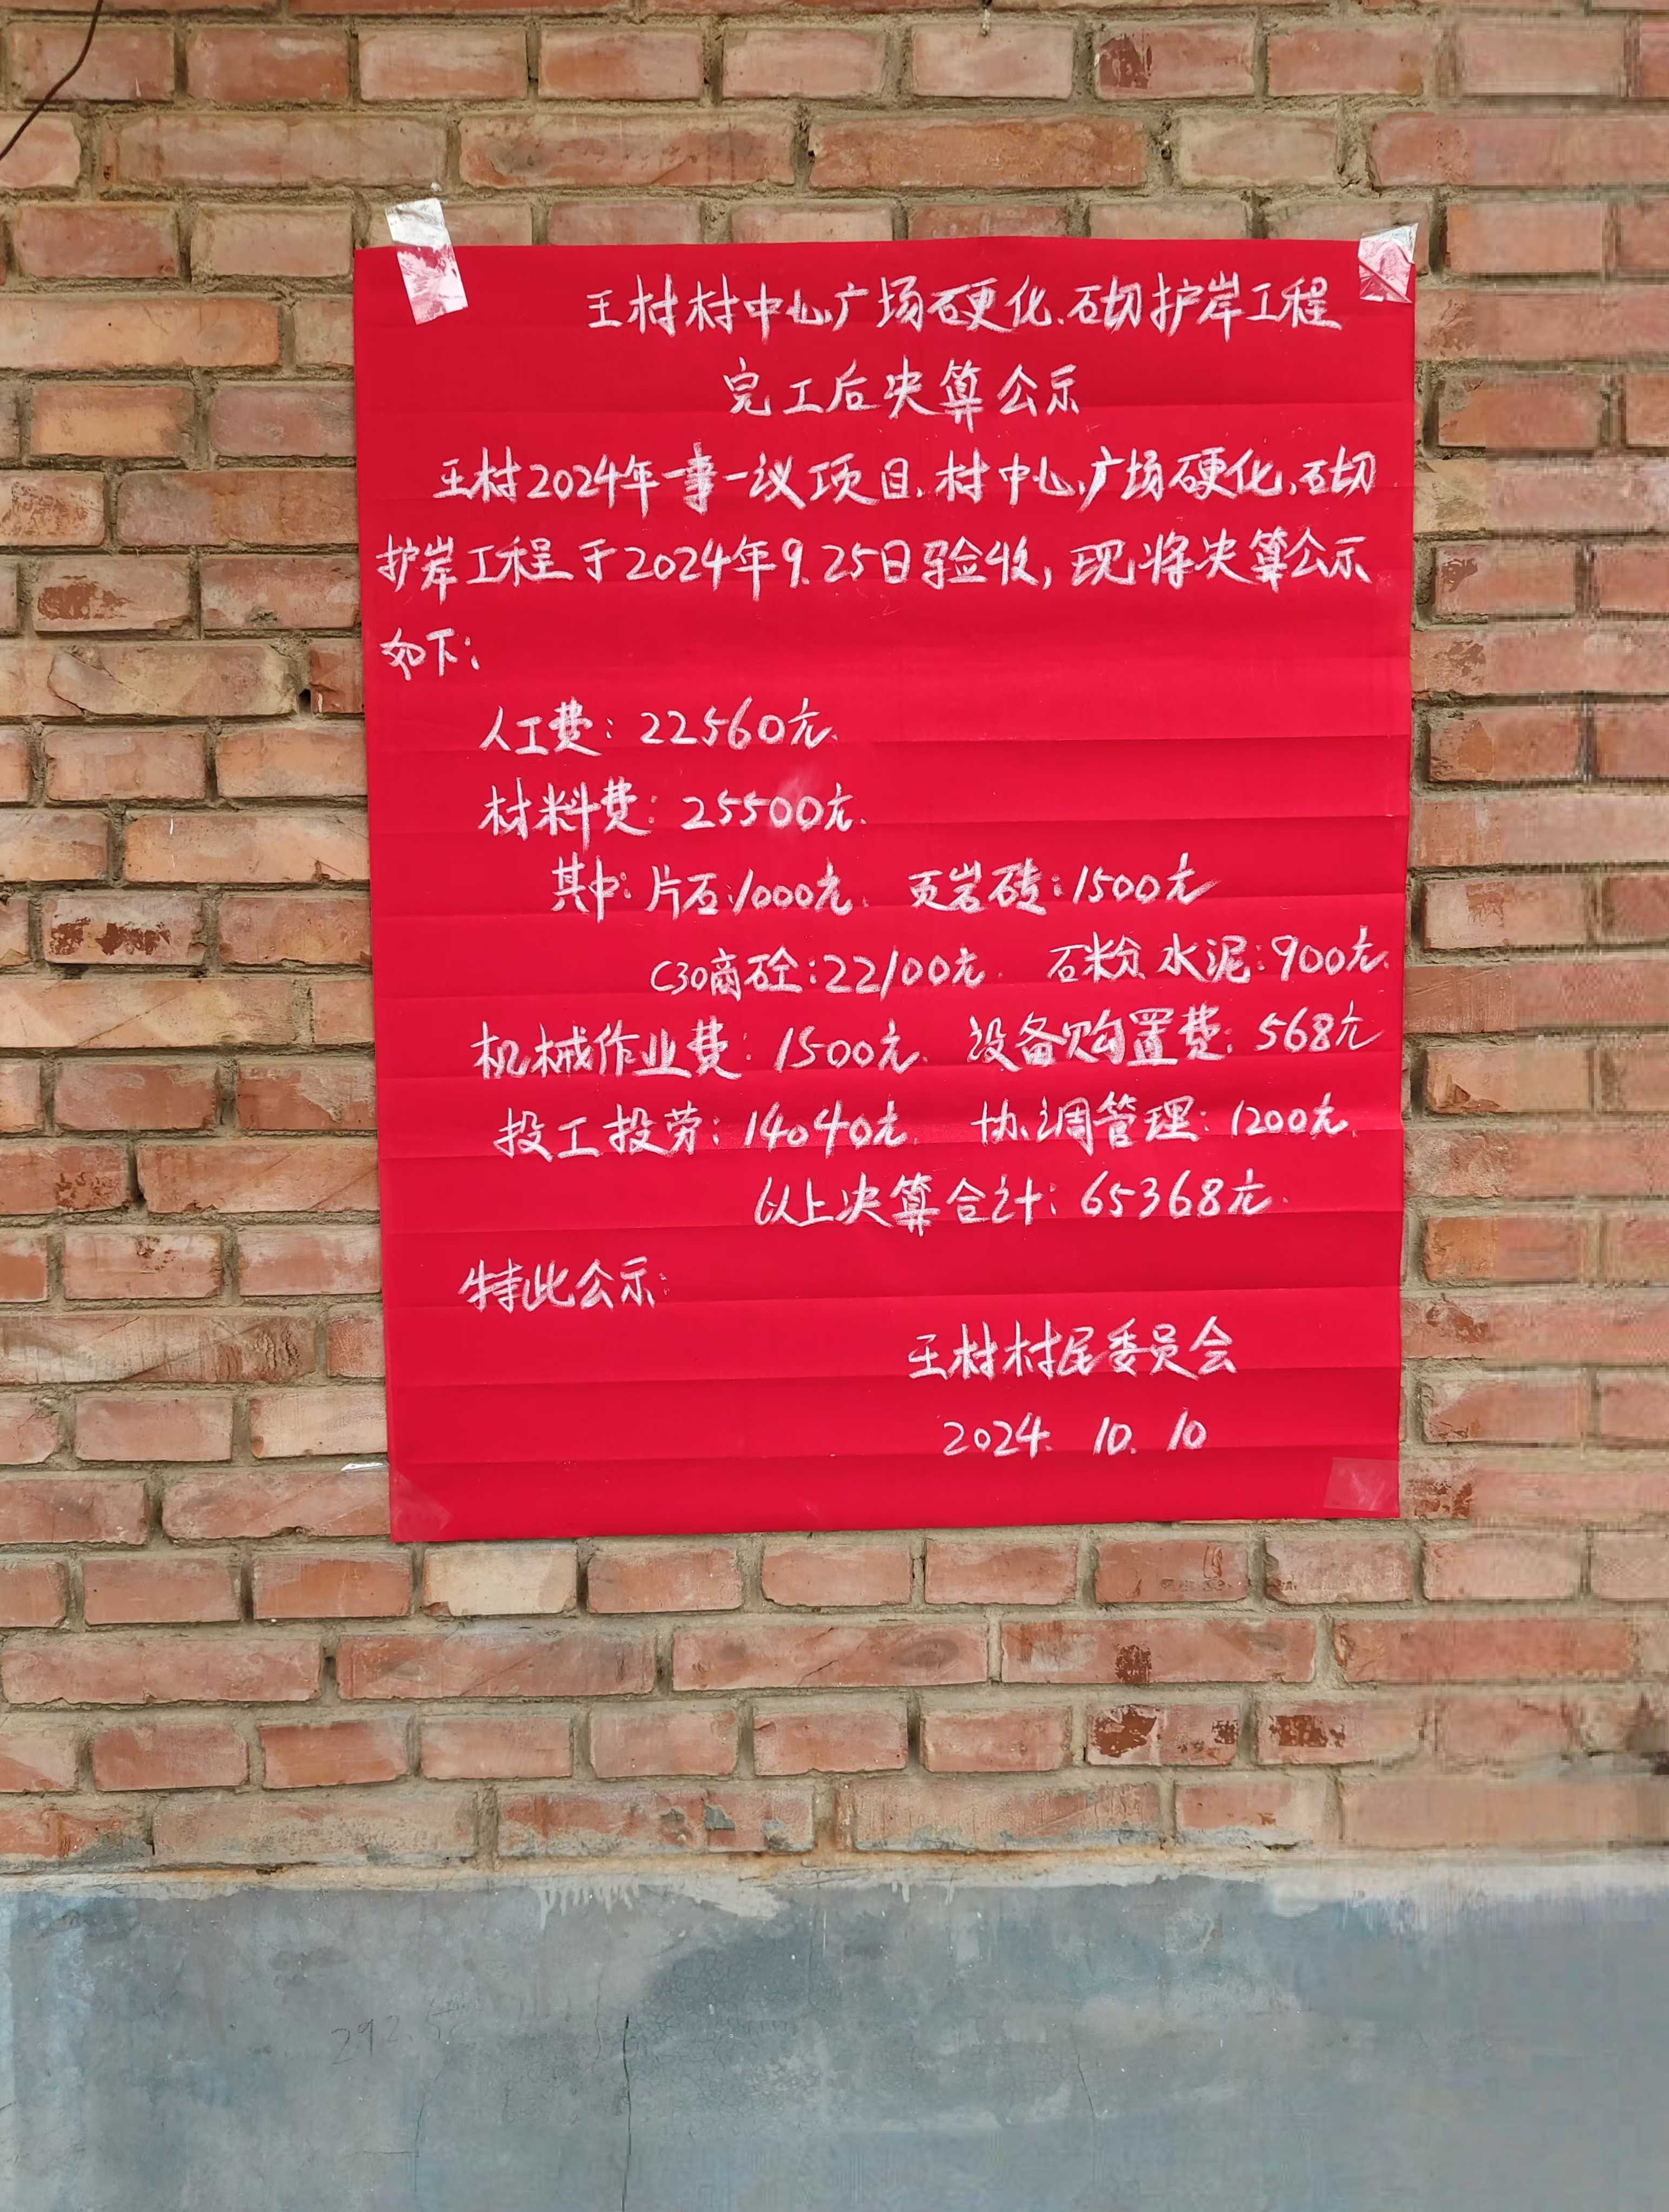 王村村中心广场硬化、砌护岸工程
完工后决算公示
王村2024年一事一议项目,村中心广场硬化,砌
护岸工程于2024年9.25日验收,现将决算公示
如下:
人工费:22560元.
材料费:25500元.
其中:片石:1000元. 页岩砖:1500元
C30商砼:22100元. 石粉水泥:900元.
机械作业费:1500元. 设备购置费:568元
投工投劳:14040元. 协调管理:1200元.
以上决算合计:65368元.
特此公示:
王村村民委员会
2024.10.10
292.5